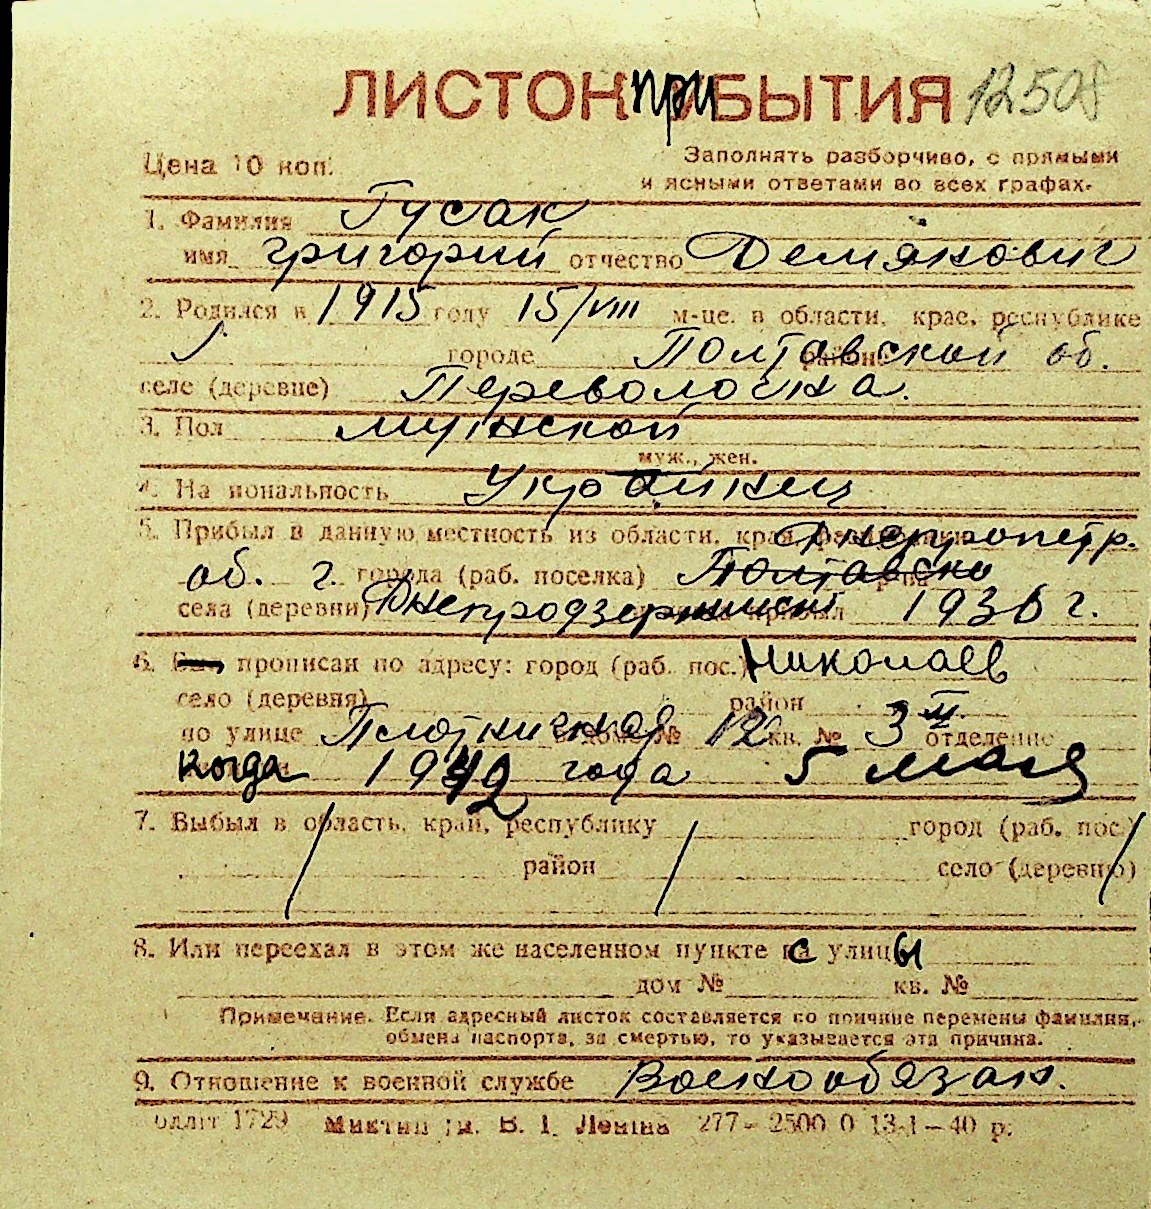 ЛИСТОК прибЫТИЯ 12508
Цена 10 коп.
Заполнять разборчиво, с прямыми
и ясными ответами во всех графах.
1. Фамилия Гусак
имя григорий отчество Демянович
2. Родился в 1915 году 15/VIII м-це. в области, крае, республике
городе Полтавской об.
селе (деревне) Переволочна.
3. Пол мужской
муж., жен.
4. Национальность Украинец
5. Прибыл в данную местность из области, края Днепропетр.
об. г. города (раб. поселка) Полтавско
села (деревни) Днепродзержинск прибыл 1936 г.
6. прописан по адресу: город (раб. пос.) Николаев
село (деревня) район
по улице Плотничная дом № 12 кв. № 3 II отделение
Когда 1942 года 5 мая
7. Выбыл в область, край, республику город (раб. пос.)
район село (деревню)
8. Или переехал в этом же населенном пункте с улицы
дом № кв. №
Примечание. Если адресный листок составляется по причине перемены фамилии,
обмена паспорта, за смертью, то указывается эта причина.
9. Отношение к военной службе Военнообязан.
одліт 1729 Миктип ім. В. І. Леніна 277-2500 0 13-1-40 р.